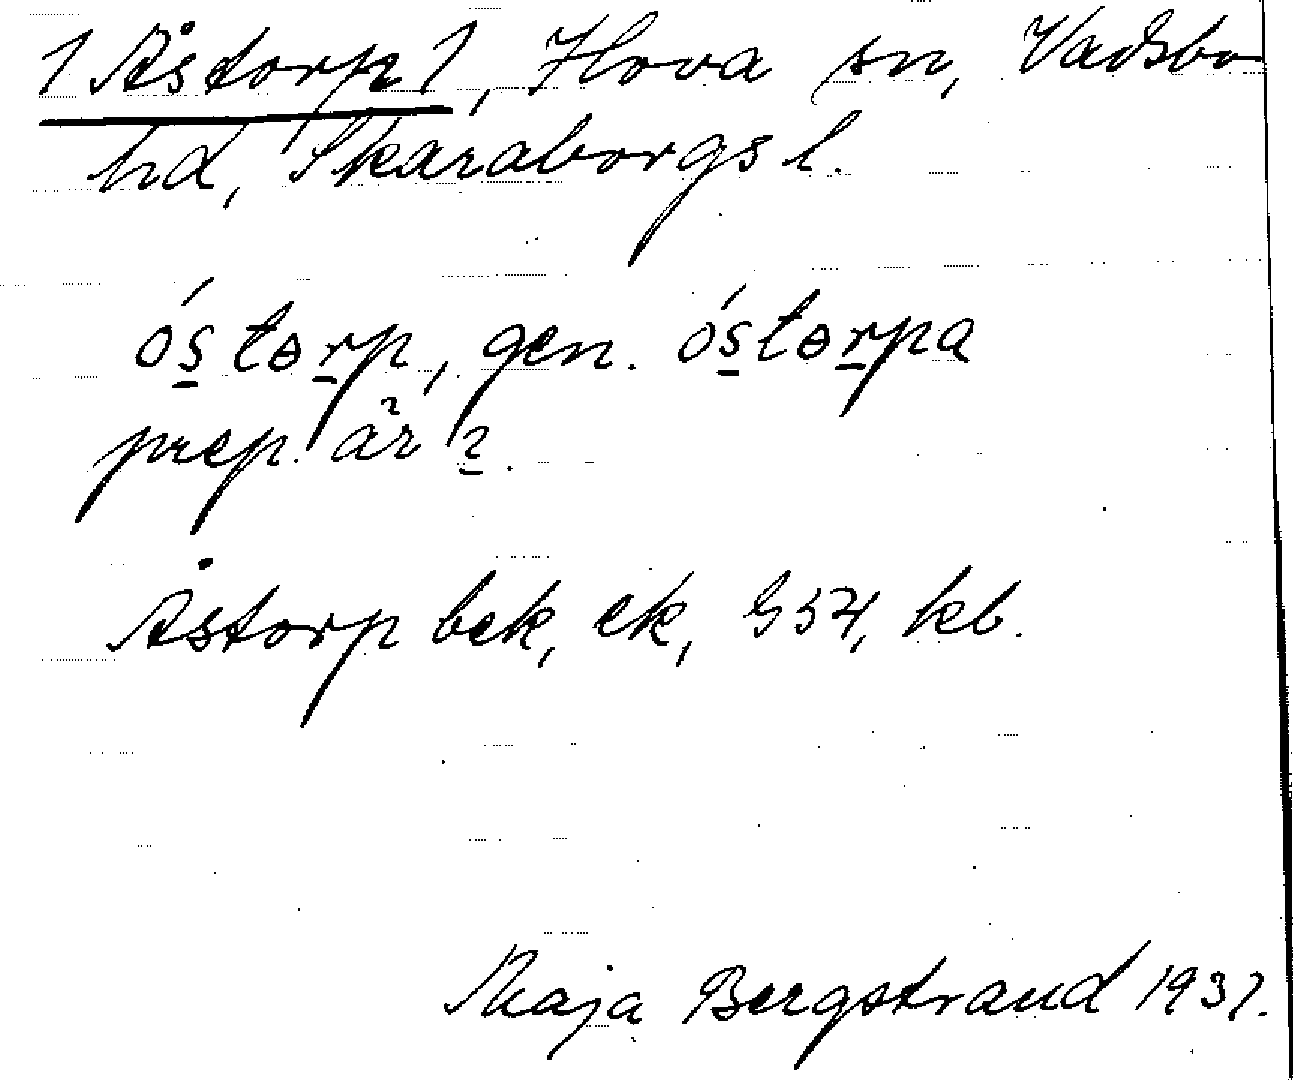 1 Åstorp 1, Hova sn, Vadsbo
hd, Skaraborgs l.
ós̱tɵṟp, gen. ós̱tɵṟpa
prep.
Åstorp bek, ek, G 54, kb.
Maja Bergstrand 1937.